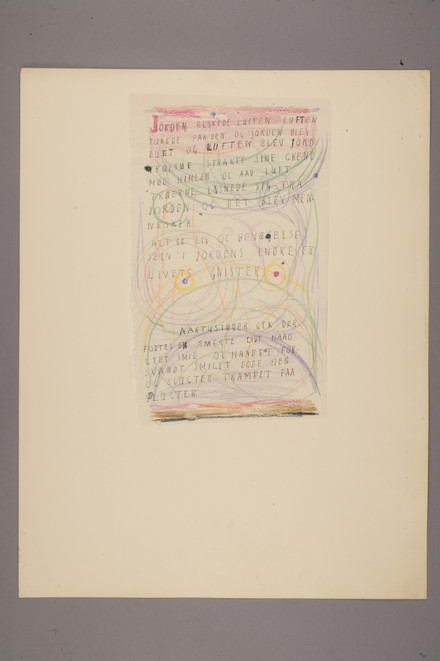 JORDEN ELSKEDE LUFTEN LUFTEN
TÆREDE PAA DEN OG JORDEN BLEV
LUFT OG LUFTEN BLEV JORD
TRÆERNE STRAKTE SINE GRENE
MOD HIMLEN OG AAD LUFT
TRÆERNE LØSNEDE SIG FRA
JORDEN OG DET BLEV MEN
NESKER
ALT ER LIV OG BEVÆGELSE
SELV I JORDENS INDRE ER
LIVETS GNISTER
AARTUSINDER GIK DER
FØDTES EN SMERTE LIDT HAAB
LIDT SMIL OG HAABET FOR
SVANDT SMILET DØDE HEN
OG SLÆGTER TRAMPET PAA
SLÆGTER